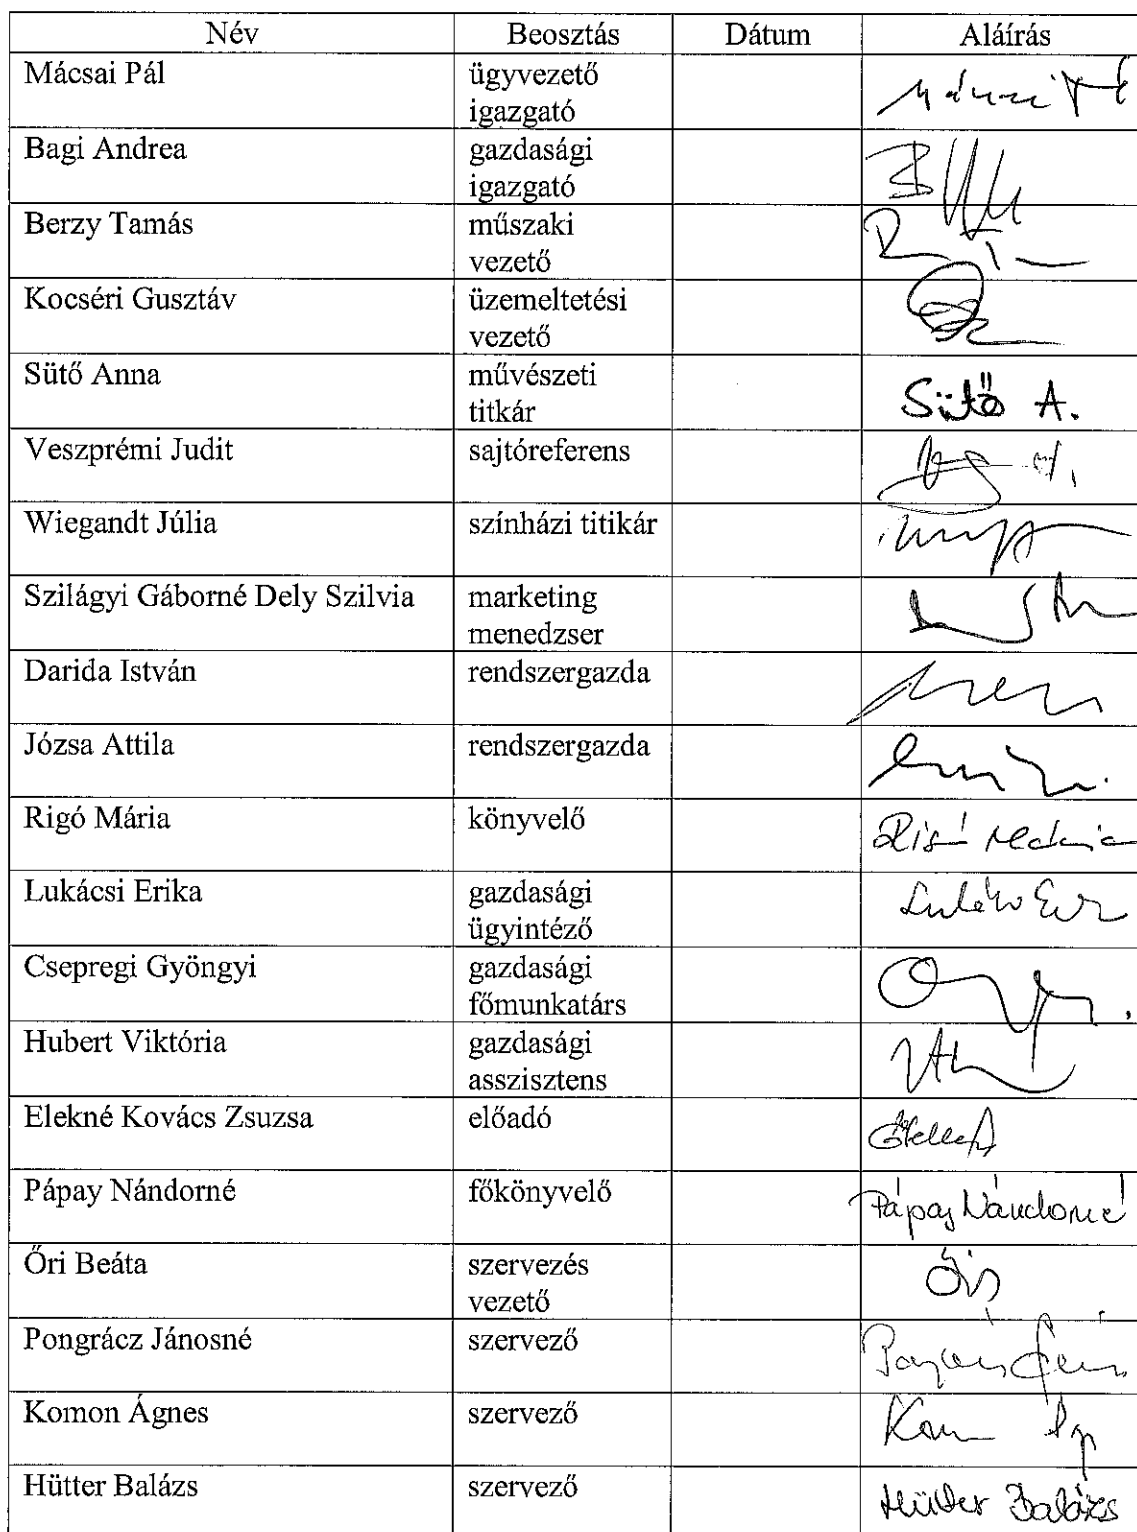 Név Beosztás Dátum Aláírás
Mácsai Pál ügyvezető
igazgató
Bagi Andrea gazdasági
igazgató
Berzy Tamás műszaki
vezető
Kocséri Gusztáv üzemeltetési
vezető
Sütő Anna művészeti
titkár Sütő A.
Veszprémi Judit sajtóreferens
Wiegandt Júlia színházi titikár
Szilágyi Gáborné Dely Szilvia marketing
menedzser
Darida István rendszergazda
Józsa Attila rendszergazda
Rigó Mária könyvelő Rigó Mária
Lukácsi Erika gazdasági
ügyintéző
Csepregi Gyöngyi gazdasági
főmunkatárs
Hubert Viktória gazdasági
asszisztens
Elekné Kovács Zsuzsa előadó
Pápay Nándorné főkönyvelő Pápay Nándorné
Őri Beáta szervezés
vezető
Pongrácz Jánosné szervező
Komon Ágnes szervező
Hütter Balázs szervező Hütter Balázs